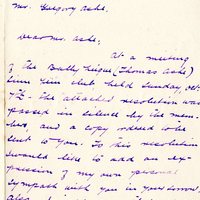 Mr. Gregory Ashe.
Dear Mr. Ashe,
At a meeting
of the (Thomas Ashe)
Sinn Fein Club held Sunday, Oct.
7th. The attached resolution was
passed in silence by the mem-
bers, and a copy ordered to be
sent to you. To this resolution
I would like to add an ex-
pression of my own personal
sympathy with you in your sorrow.
also